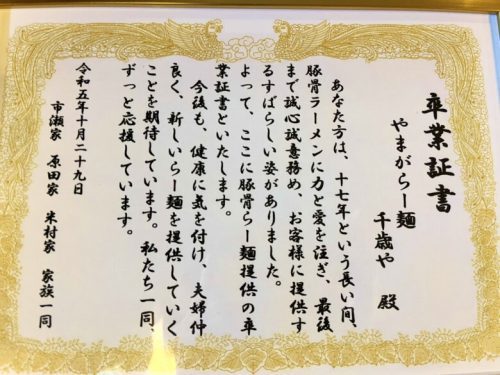 卒業証書
やまがらー麺
千歳や 殿
あなた方は、十七年という長い間、
豚骨ラーメンに力と愛を注ぎ、最後
まで誠心誠意務め、お客様に提供す
るすばらしい姿がありました。
よって、ここに豚骨らー麺提供の卒
業証書といたします。
今後も、健康に気を付け、夫婦仲
良く、新しいらー麺を提供していく
ことを期待しています。私たち一同、
ずっと応援しています。
令和五年十月二十九日
市瀬家 原田家 米村家 家族一同